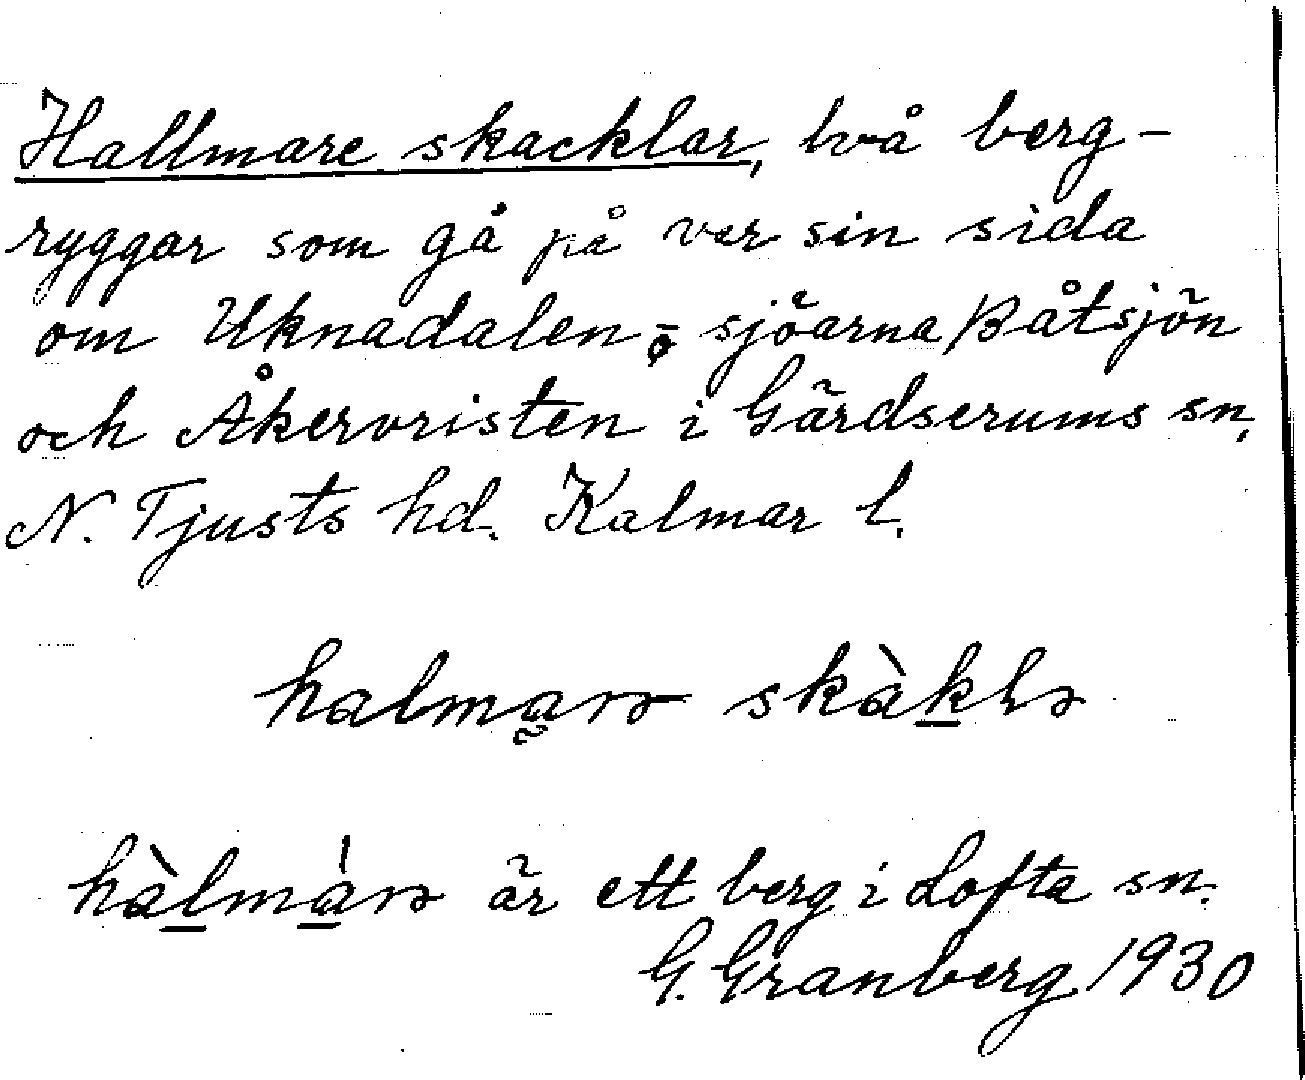 Hallmare skacklar, två berg-
ryggar som gå på var sin sida
om Uknadalen, sjöarna Båtsjön
och Åkervristen i Gärdserums sn,
N. Tjusts hd. Kalmar l.
halmarə skàklə
hàlmárə är ett berg i Lofta sn.
G. Granberg 1930